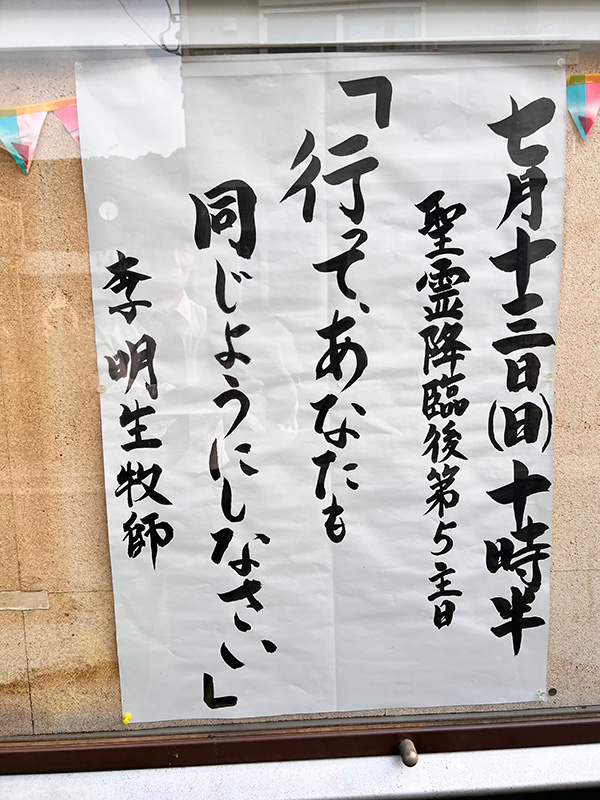 七月十三日(日)十時半
聖霊降臨後第5主日
「行って、あなたも
同じようにしなさい」
李明生牧師